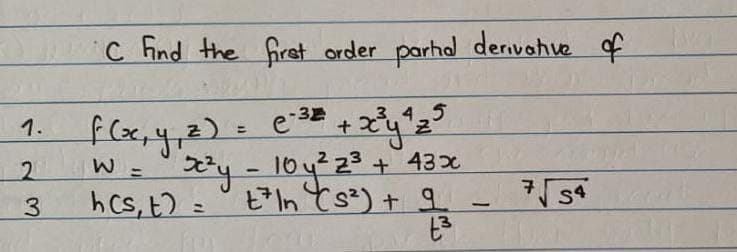 C Find the first order partial derivative of
1. f(x, y, z) = e⁻³ᶻ + x³y⁴z⁵
2 w = x²y - 10y²z³ + 43x
3 h(s, t) = t⁷ ln (s²) + 9/t³ - ⁷√s⁴